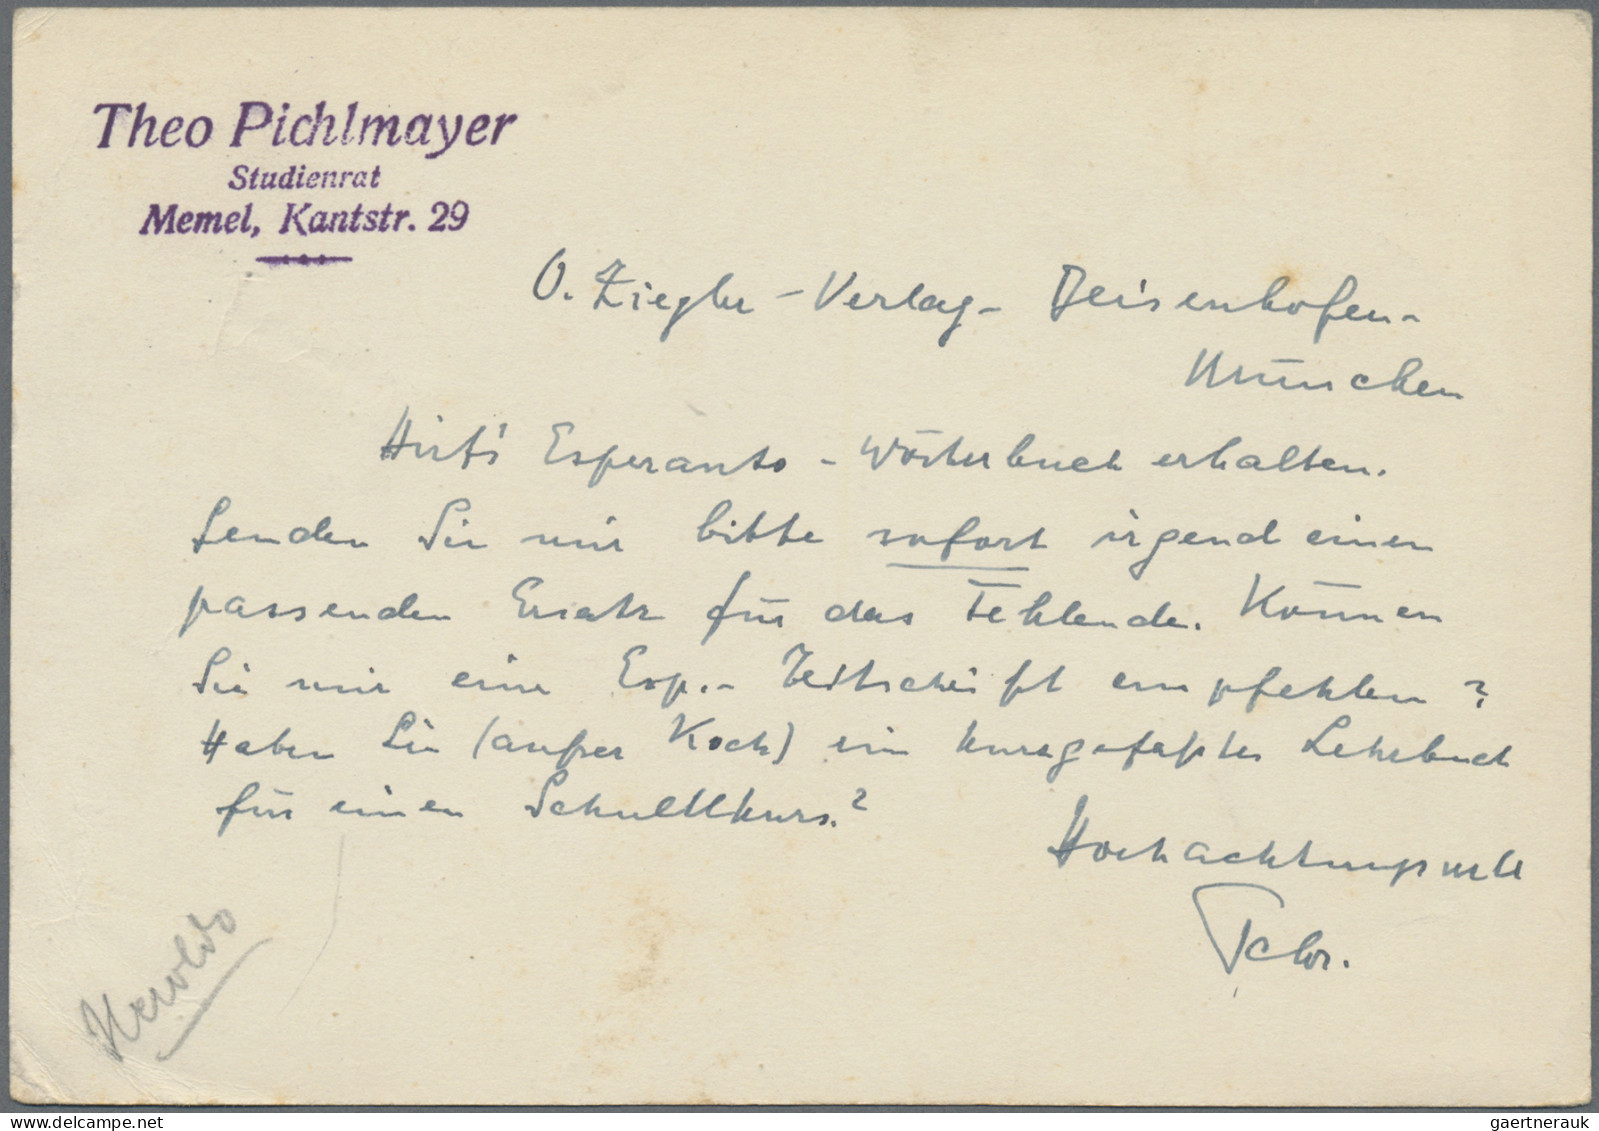 Theo Pichlmayer
Studienrat
Memel, Kantstr. 29
O. Ziegler - Verlag - Deisenhofen -
München
Hirt's Esperanto - Wörterbuch erhalten.
Senden Sie mir bitte sofort irgend einen
passenden Ersatz für das Fehlende. Können
Sie mir eine Esp. - Zeitschrift empfehlen?
Haben Sie (außer Koch) ein kurzgefaßtes Lehrbuch
für einen Schnellkurs?
Hochachtungsvoll
Heroldo
gaertnerauk@delcampe.net